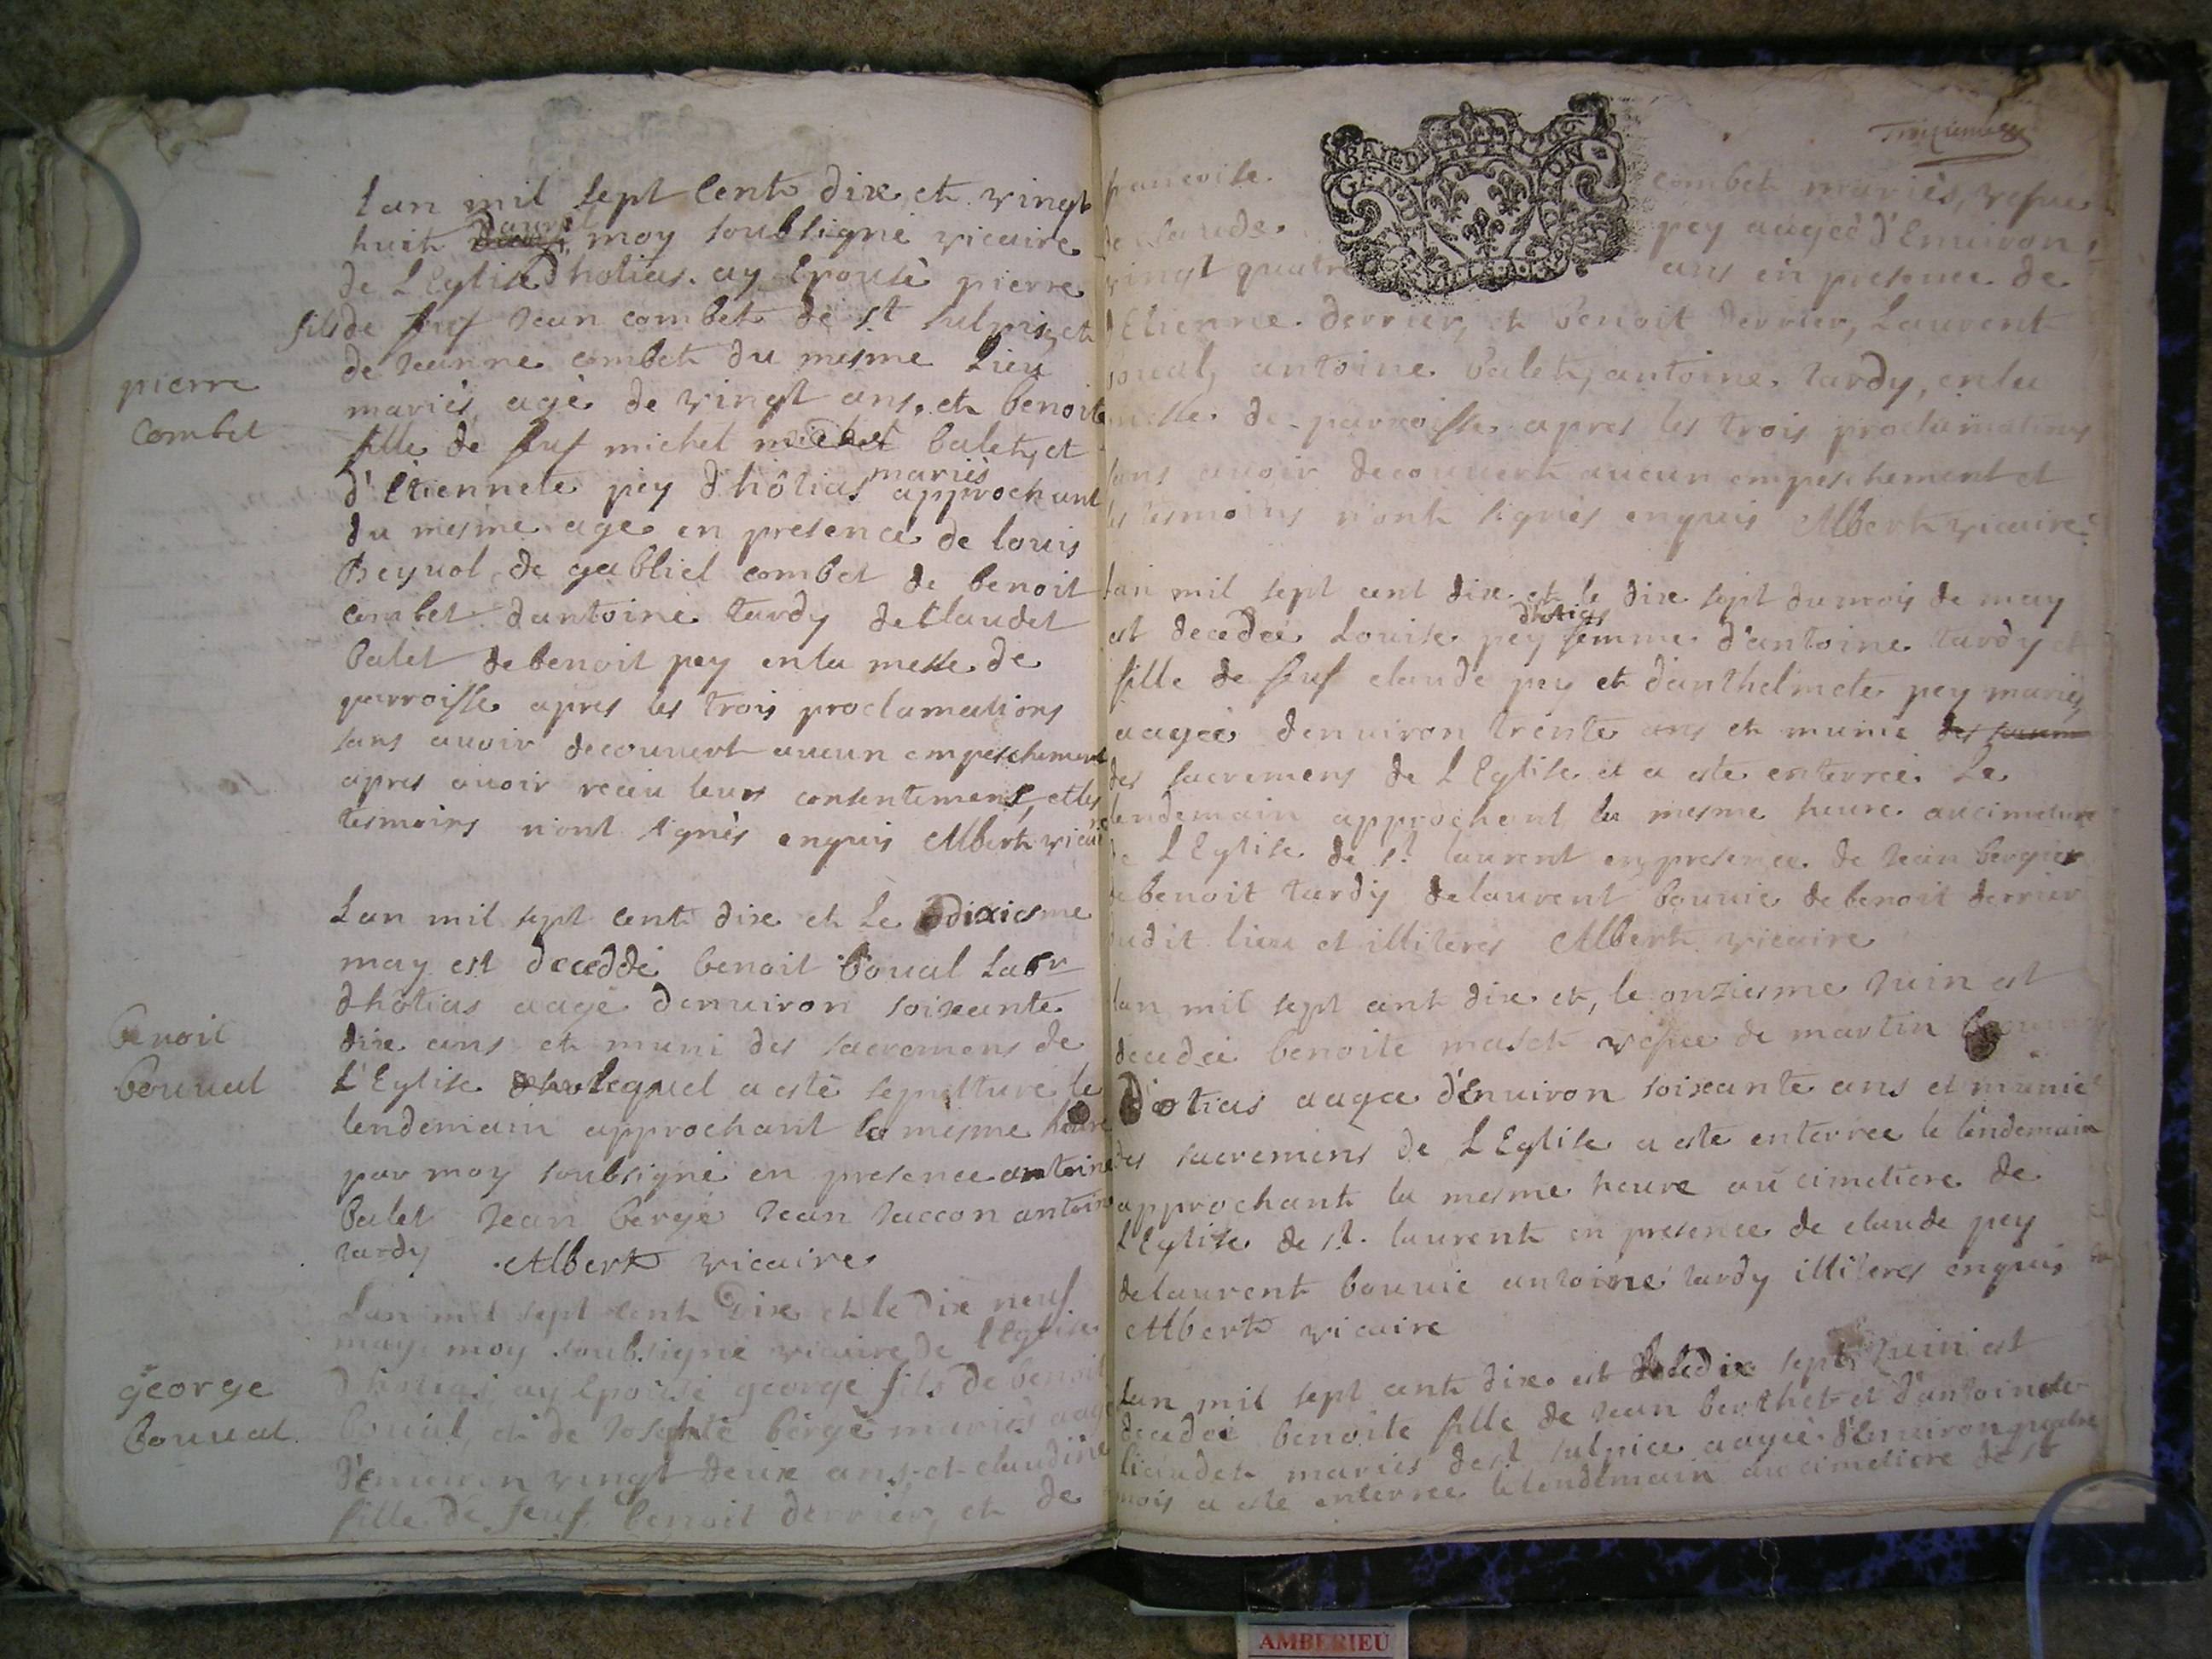 Lan mil sept Cent dix et vingt
huit davril moy soubsigné vicaire
de L'Eglise dhotias ay Epousé pierre
fils de feuf Jean combet de st sulpis, et
de Jeanne combet du mesme Lieu
mariés, agé de vingt ans, et benoite
fille de feuf michel balet, et
d'Etiennete pey d'hôtias mariés approchant
du mesme age en presence de louis
Beyuol de gabliel combet de benoit
combet dantoine tardy de Claudet
balet de benoit pey en la messe de
parroisse apres les trois proclamations
sans avoir decouvert aucun empeschement
apres avoir receu leurs consentemens, et les
tesmoins n'ont signés enquis Albert vicaire
pierre
Combet
Lan mil sept cent dix et Le dixiesme
may est deceddé benoit boual labr
dhotias aagé denuiron soixante
dix ans et muni des sacremens de
L'Eglise lequel a esté sepulturé le
lendemain approchant la mesme heure
par moy soubsigné en presence antoine
balet Jean bergé Jean Jaccon antoine
tardy Albert vicaire
benoit
bouual
Lan mil sept cent dix et le dix neuf
may moy soubsigné vicaire de l'Eglise
dhotias ay Epousé george fils de benoit
bouual, et de Josephte bergé mariés aagé
d'enuiron vingt deux ans, et claudine
fille de feuf benoit derrier, et de
george
bouual
Troizieme
francoise combet mariés, vefue
de claude pey aagée d'Enuiron
vingt quatre ans en presence de
d'Etienne derrier, et benoit derrier, Laurent
boual, antoine balet, antoine tardy, en la
messe de parroisse apres les trois proclamations
sans avoir decouvert aucun empeschement et
les tesmoins n'ont signés enquis Albert vicaire
Lan mil sept cent dix et le dix sept du mois de may
est decedée Louise pey dhotias femme d'antoine tardy et
fille de feuf claude pey et danthelmete pey mariés,
aagée denuiron trente ans et munie
des sacremens de L'Eglise et a este enterrée Le
lendemain approchant la mesme heure au cimetiere
de L'Eglise de st laurent en presence de Jean bergier
de benoit tardy de laurent bouuie de benoit derrier
dudit lieu et illiteres Albert vicaire
Lan mil sept cent dix et, le onziesme Juin est
decedée benoite maset vefue de martin
d'otias aagee d'Enuiron soixante ans et munie
des sacremens de L'Eglise a este enterree le lendemain
approchant la mesme heure au cimetiere de
L'Eglise de st laurent en presence de claude pey
de laurent bouuie antoine tardy illiteres enquis
Albert vicaire
Lan mil sept cent dix et le dix sept Juin est
decedée benoite fille de Jean berthet et d'antoinete
liaudet mariés de st sulpice aagée d'Enuiron quatre
mois a este enterree le lendemain au cimetiere de st
AMBERIEU